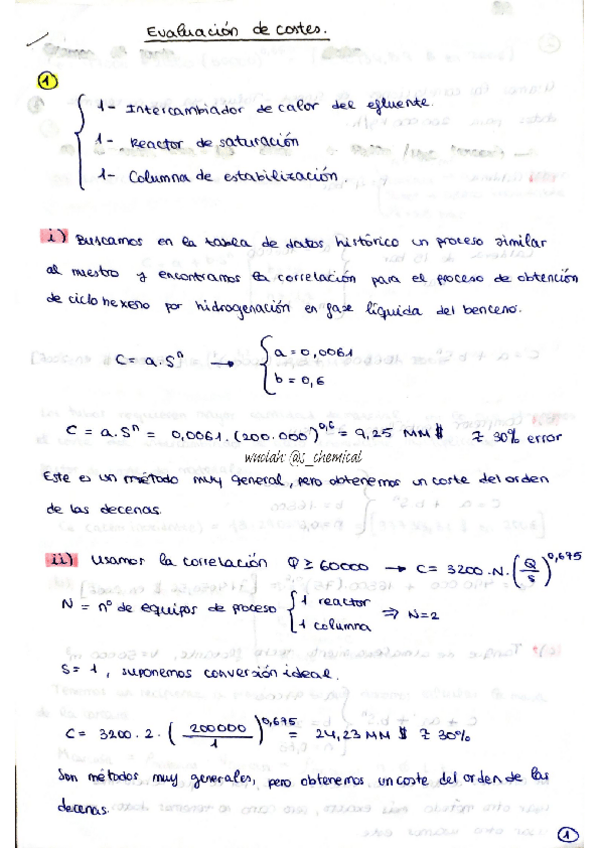 Evaluación de costes.
1
1- Intercambiador de calor del efluente.
1- Reactor de saturación
1- Columna de estabilización.
i) Buscamos en la tabla de datos histórico un proceso similar
al nuestro y encontramos la correlación para el proceso de obtención
de ciclohexeno por hidrogenación en fase líquida del benceno.
C = a.Sⁿ → { a = 0,0061
b = 0,6
C = a.Sⁿ = 0,0061.(200.000)^0,6 = 9,25 MM $ ± 30% error
wuolah: @s_chemical
Este es un método muy general, pero obtenemos un coste del orden
de las decenas.
ii) Usamos la correlación Q ≥ 60000 → C = 3200.N.(Q/S)^0,675
N = nº de equipos de proceso { 1 reactor ⇒ N=2
1 columna
S = 1, suponemos conversión ideal.
C = 3200.2.(200000/1)^0,675 = 24,23 MM $ ± 30%
Son métodos muy generales, pero obtenemos un coste del orden de las
decenas.
1